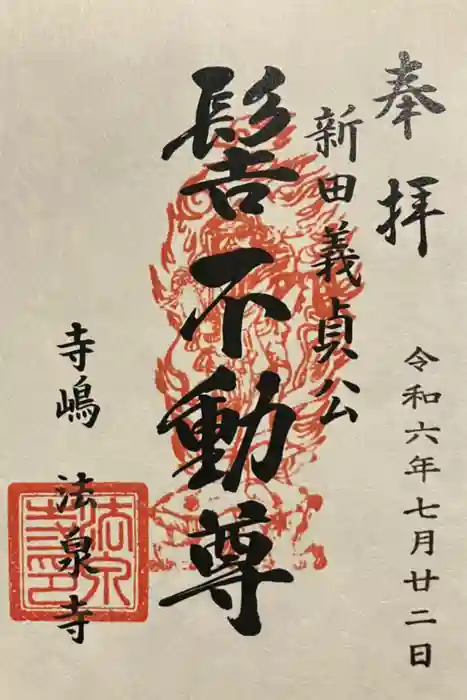 奉拝
令和六年七月廿二日
新田義貞公
髻不動尊
寺嶋 法泉寺
法泉寺印